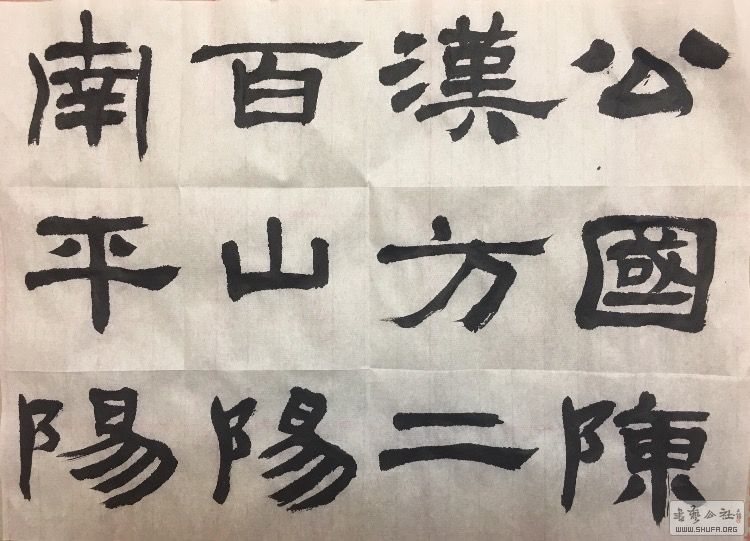 公國陳
漢方二
百山陽
南平陽
書藝公社
WWW.SHUFA.ORG